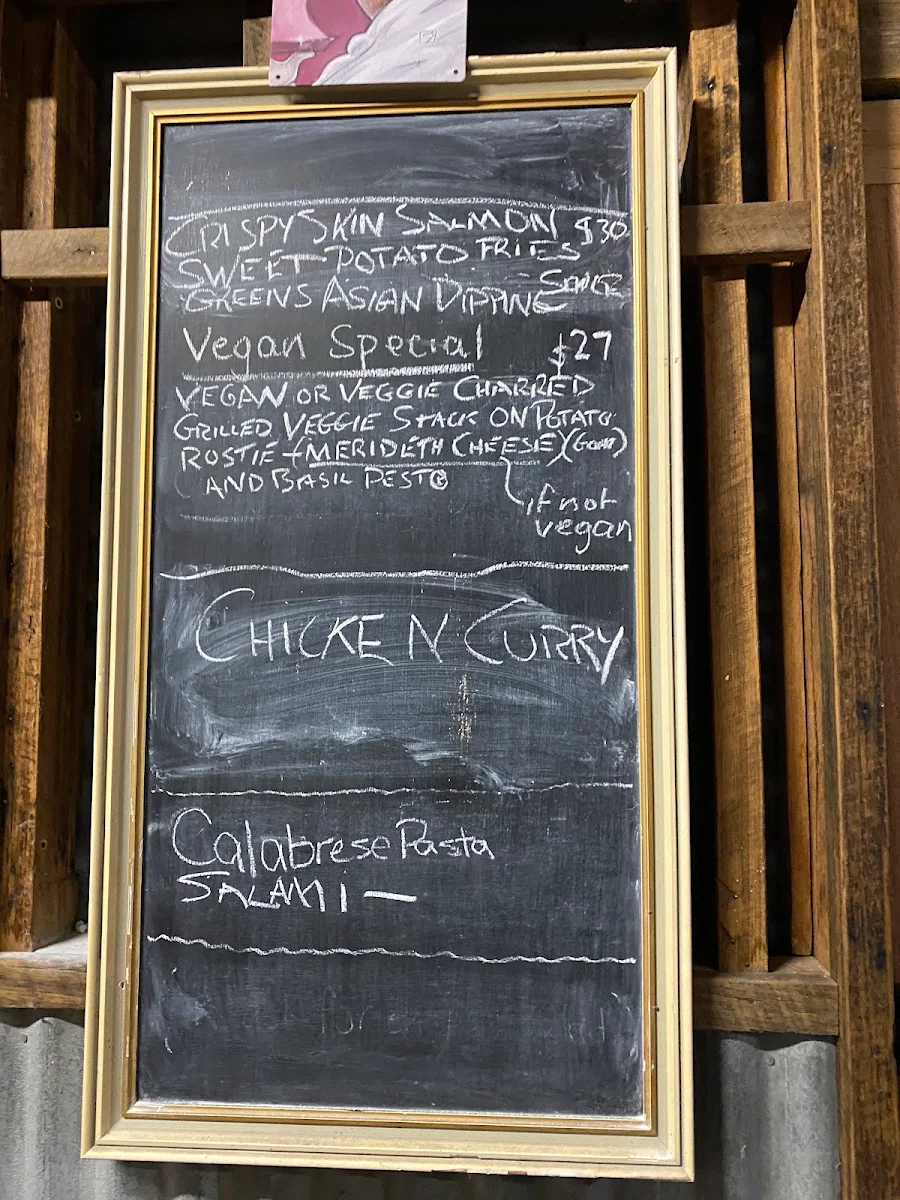 CRISPY SKIN SALMON $30
SWEET POTATO FRIES
GREENS ASIAN DIPPING SAUCE
Vegan Special $27
VEGAN OR VEGGIE CHARRED
GRILLED VEGGIE STACK ON POTATO
ROSTIE + (MERIDETH CHEESE) (GOAT)
AND BASIL PESTO
if not
vegan
CHICKEN CURRY
Calabrese Pasta
SALAMI —